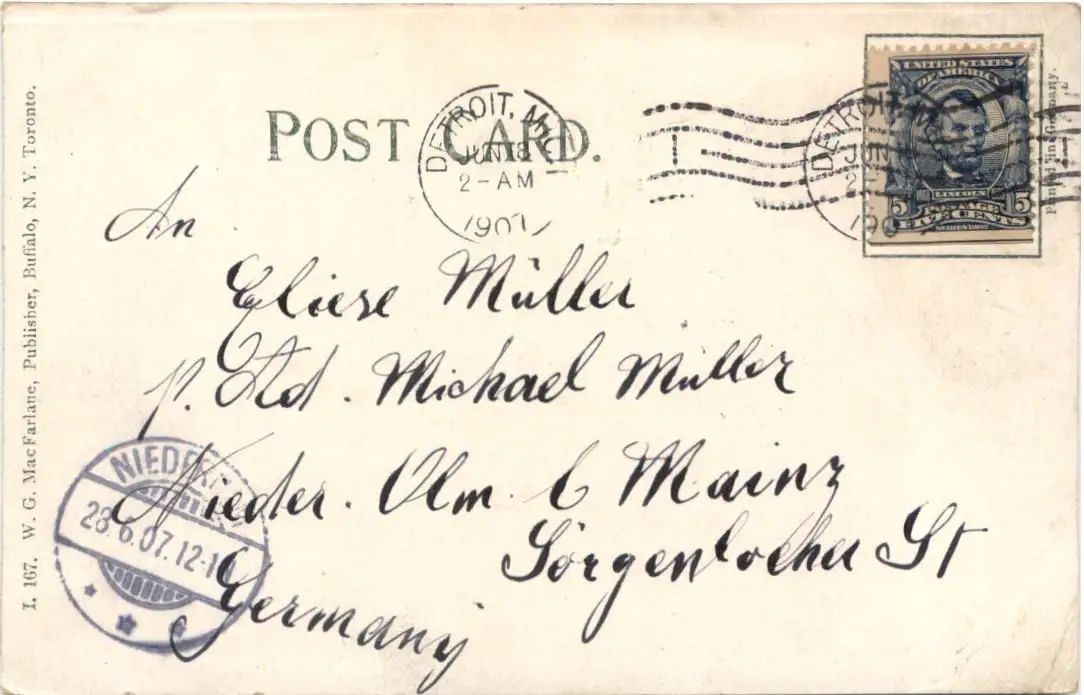 POST CARD.
DETROIT, MICH
JUN 18
2-AM
1907
DETROIT, MICH
JUN
190
UNITED STATES
OF AMERICA
LINCOLN
5 POSTAGE 5
FIVE CENTS
SERIES 1902
Printed in Germany.
An
Eliese Müller
p. Ad. Michael Müller
Nieder. Olm b Mainz
Sörgenlocher St
Germany
NIEDER
28.6.07.12-1
I. 167. W. G. MacFarlane, Publisher, Buffalo, N. Y. Toronto.